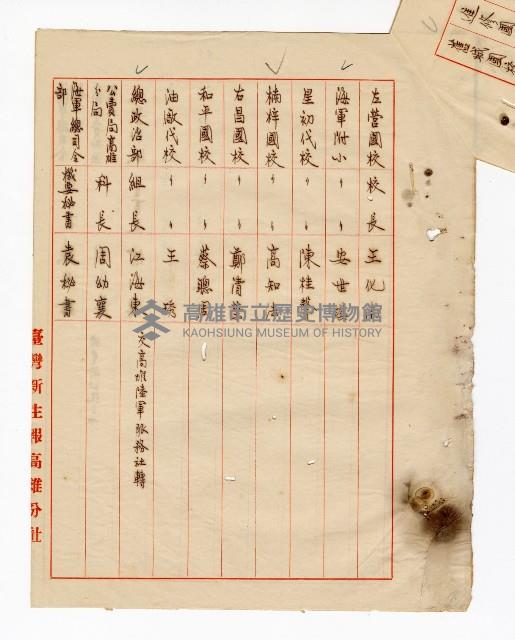 左營國校 校長 王化
海軍附小 〃 〃 安世
星初代校 〃 〃 陳桂
楠梓國校 〃 〃 高知
右昌國校 〃 〃 鄭清
和平國校 〃 〃 蔡聰
油廠代校 〃 〃 王
總政治部 組長 江海東 交高雄陸軍服務社轉
公賣局高雄分局 科長 周幼襄
海軍總司令部 機要秘書 袁秘書
臺灣新生報高雄分社
高雄市立歷史博物館
KAOHSIUNG MUSEUM OF HISTORY